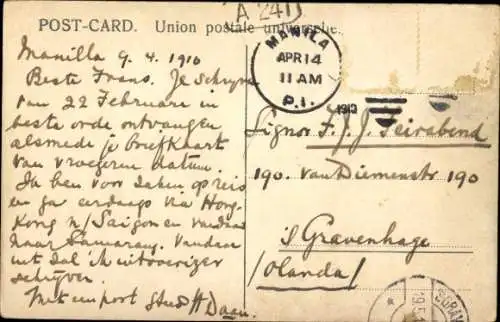 A 241
POST-CARD. Union postale universelle.
Manilla 9.4.1910
Beste Frans. Je schryven
van 22 Februari in
beste orde ontvangen
alsmede je Briefkaart
van vroegeren datum.
Ik ben voor zaken op reis
en ga eerdaags via Hong-
kong n/ Saigon en vandaar
naar Samarang. Vandaar
uit zal ik uitvoeriger
schrijven.
Met een post Hand H Daan.
MANILA
APR 14
11 AM
P.I.
1910
Signor F. J. J. Feirabend
190. van Diemenstr 190
s Gravenhage
/Olanda/
'SGRAV
19.5